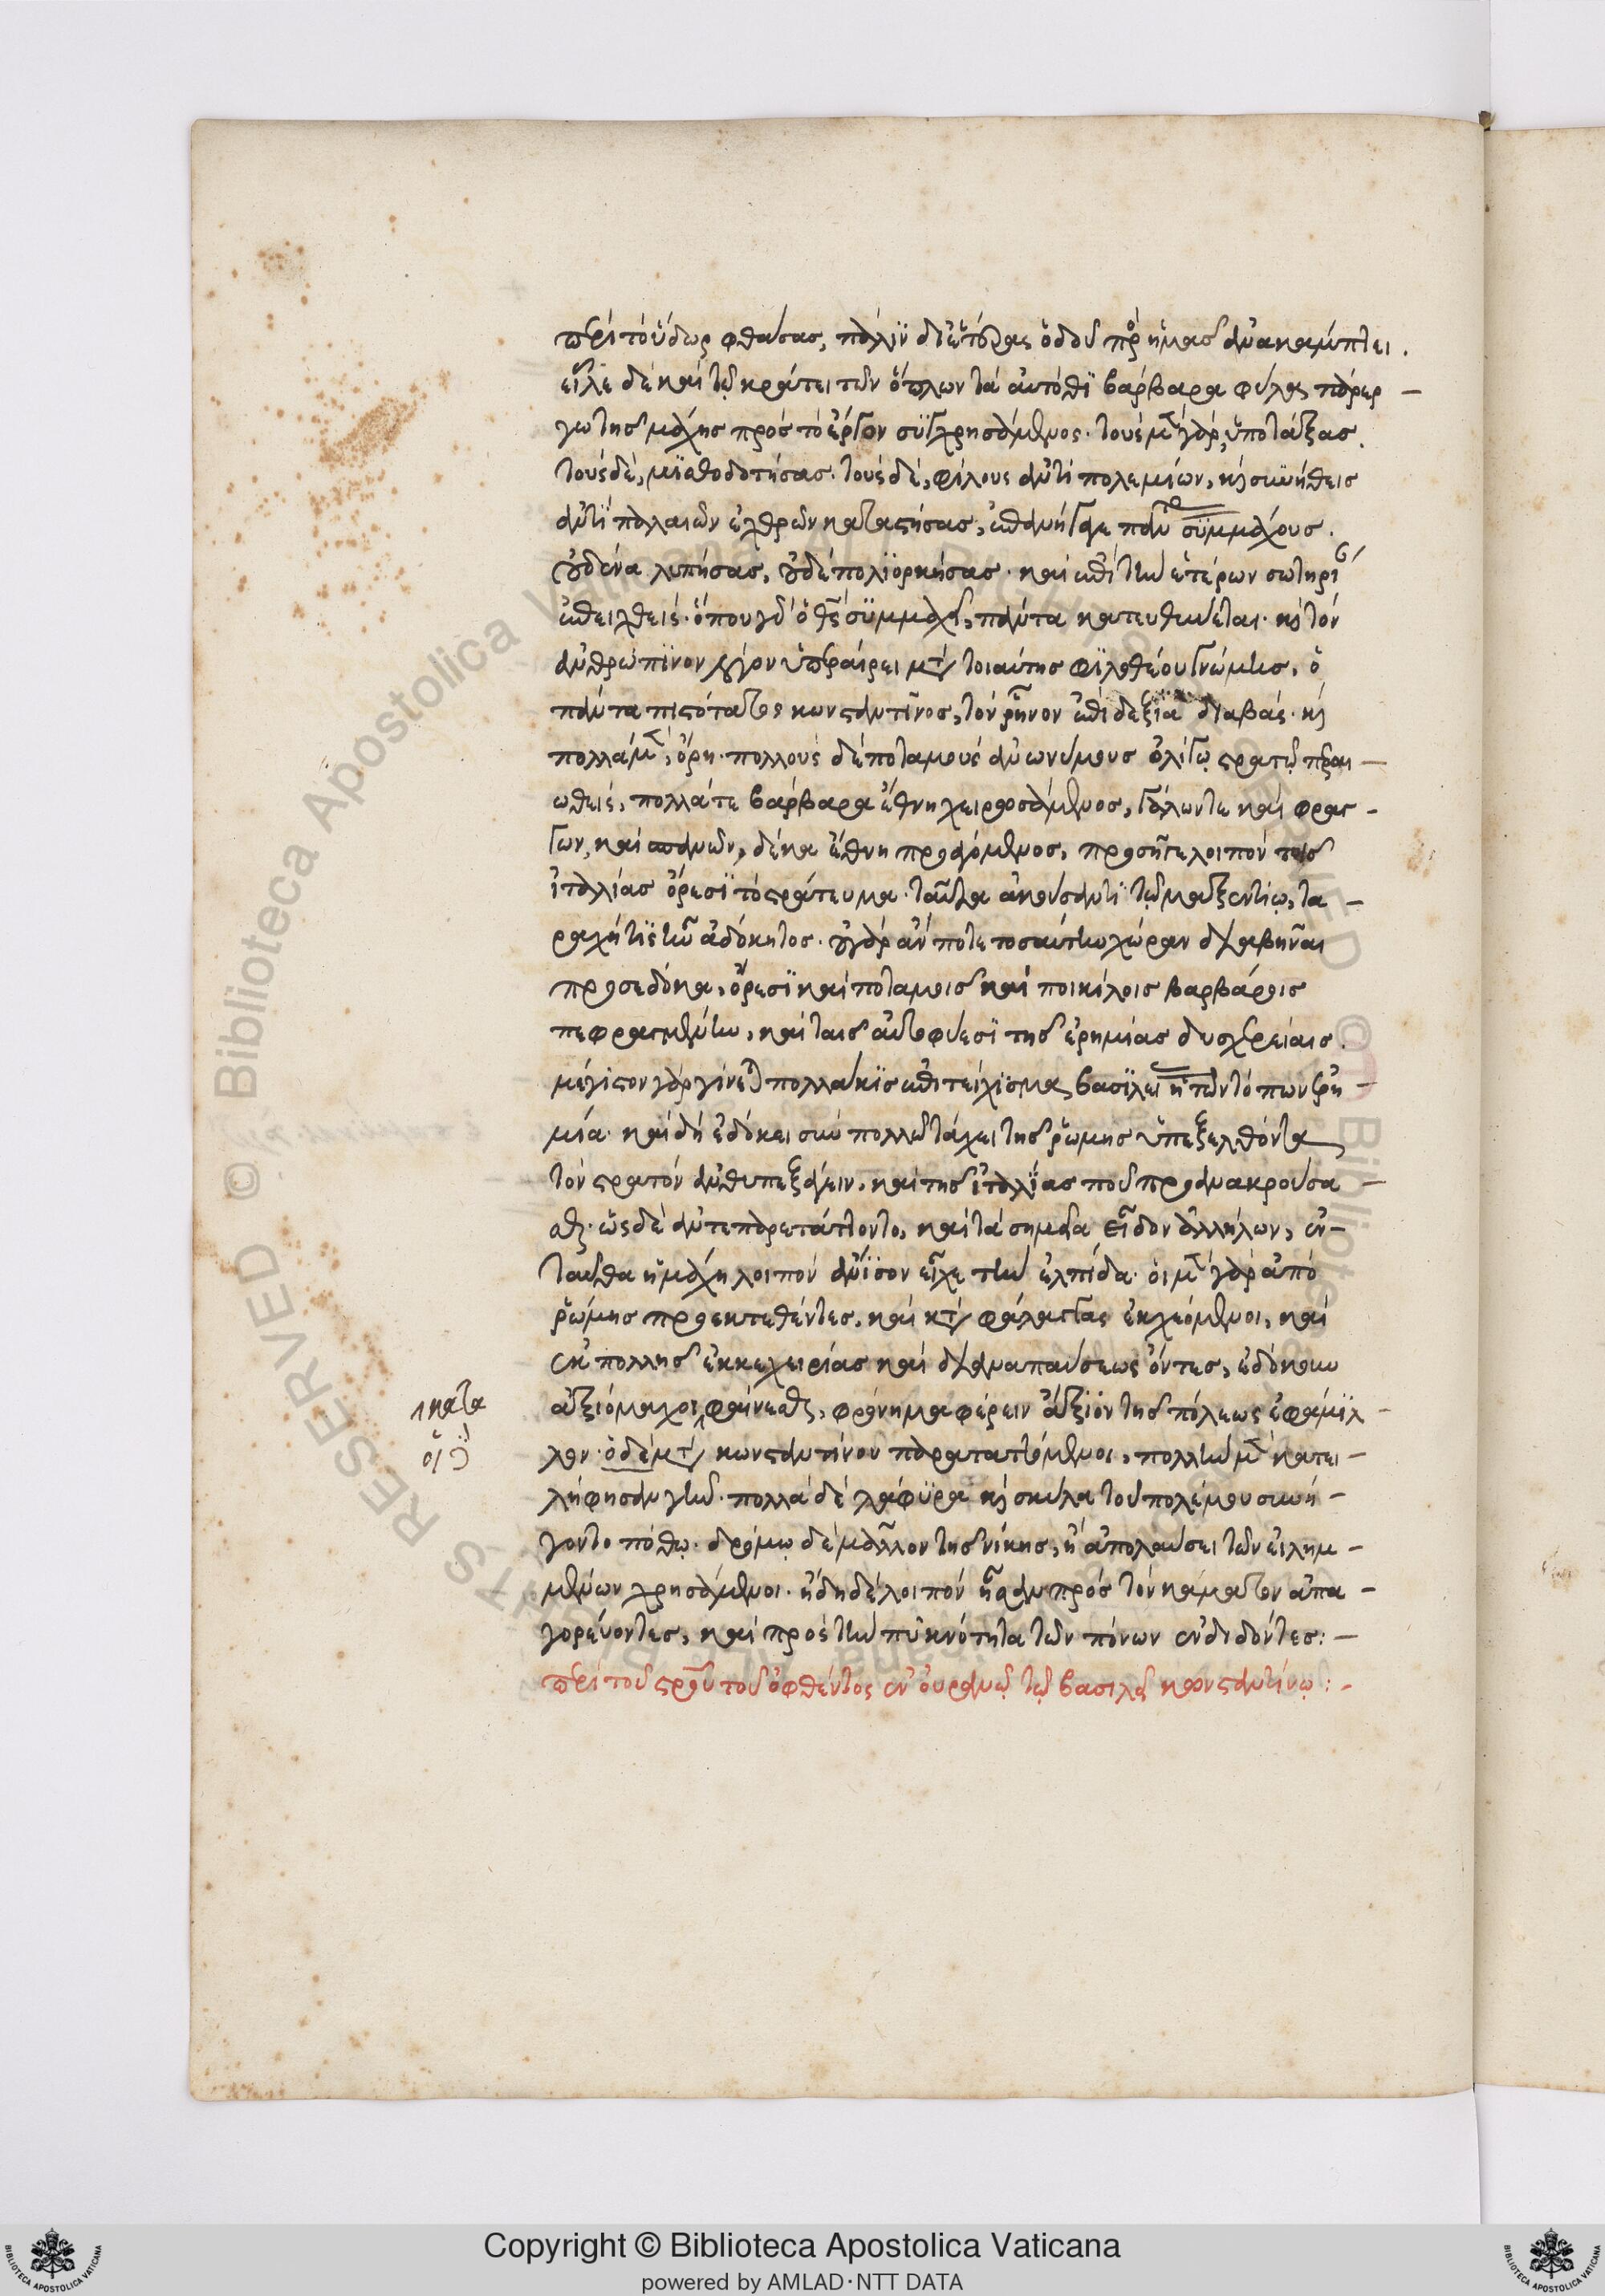 περὶ τὸ ὕδωρ φθάσας, πάλιν δι' ἑτέρας ὁδοῦ πρὸς ἡμᾶς ἀνακάμπτει.
εἷλε δὲ καὶ τῷ κράτει τῶν ὅπλων τὰ αὐτόθι βάρβαρα φύλα, παρέρ-
γω τῆς μάχης πρὸς τὸ ἔργον συγχρησάμενος. τοὺς μὲν γὰρ, ὑποτάξας.
τοὺς δὲ, μισθοδοτήσας. τοὺς δὲ, φίλους ἀντὶ πολεμίων, καὶ συνήθεις
ἀντὶ παλαιῶν ἐχθρῶν καταστήσας, ἐπανήγαγε πάντας συμμάχους.
οὐδένα λυπήσας, οὐδὲ πολιορκήσας. καὶ ἐπὶ τὴν ἑτέρων σωτηρίαν
ἐπειχθείς. ὅπου γὰρ ὁ θεὸς σύμμαχος, πάντα κατευθύνεται. καὶ τὸν
ἀνθρώπινον λόγον ὑπεραίρει μετὰ τοιαύτης φιλοθέου γνώμης. ὁ
πάντα πιστότατος κωνσταντῖνος, τὸν ῥῆνον ἐπὶ δεξιὰ διαβάς. καὶ
πολλὰ μὲν, ὄρη. πολλοὺς δὲ ποταμοὺς ἀνωνύμους ὀλίγῳ στρατῷ περαι-
ωθείς, πολλά τε βάρβαρα ἔθνη χειρωσάμενος, γάλων τε καὶ φραγ-
γων, καὶ ἱσπανῶν, δέκα ἔθνη προσαγόμενος, προσῆγε λοιπὸν τοῖς
ἰταλίας ὄρεσι τὸ στράτευμα. ταῦτα ἀκούσαντι τῷ μαξεντίῳ, τα-
ραχή τις ἦν ἀδόκητος. οὐ γὰρ ἄν ποτε τοσαύτην χώραν διαβῆναι
προσεδόκα, ὄρεσι καὶ ποταμοῖς καὶ ποικίλοις βαρβάροις
πεφραγμένην, καὶ ταῖς αὐτοφυέσι τῆς ἐρημίας δυσχερείαις.
μέγιστον γὰρ γίνεται πολλάκις ἐπιτείχισμα βασιλεῖ ἡ τῶν τόπων ἐρη-
μία. καὶ δὴ ἐδόκει σὺν πολλῷ τάχει τῆς ῥώμης ὑπεξελθόντα
τὸν στρατὸν ἀνθυπεξάγειν. καὶ τῆς ἰταλίας που προανακρούσα-
σθαι. ὡς δὲ ἀντεπαρετάττοντο, καὶ τὰ σημεῖα εἶδον ἀλλήλων, ἐν-
ταῦθα ἡ μάχη λοιπὸν ἄνισον εἶχε τὴν ἐλπίδα. οἱ μὲν γὰρ ἀπὸ
ῥώμης προεκτεθέντες, καὶ κατὰ φάλαγγας ἐκχεόμενοι, καὶ
ἐκ πολλῆς ἐκκεχειρίας καὶ διαναπαύσεως ὄντες, ἐδόκουν
ἀξιόμαχοι φαίνεσθαι, φρόνημα φέρειν ἄξιον τῆς πόλεως ἐφάμιλ-
λον. ὁ δὲ μετὰ κωνσταντίνου παραταττόμενοι, πολλὴν μὲν κατει-
λήφησαν γῆν. πολλὰ δὲ λάφυρα καὶ σκύλα τοῦ πολέμου συνή-
γοντο πόθῳ. δρόμῳ δὲ μᾶλλον τῆς νίκης, ἢ ἀπολαύσει τῶν εἰλημ-
μένων χρησάμενοι. ἤδη δὲ λοιπὸν ἦσαν πρὸς τὸν κάματον ἀπα-
γορεύοντες, καὶ πρὸς τὴν πυκνότητα τῶν πόνων ἐνδιδόντες:-
περὶ τοῦ σταυροῦ τοῦ ὀφθέντος ἐν οὐρανῷ τῷ βασιλεῖ κωνσταντίνῳ:-
κατὰ
οἱ
Copyright © Biblioteca Apostolica Vaticana
powered by AMLAD·NTT DATA